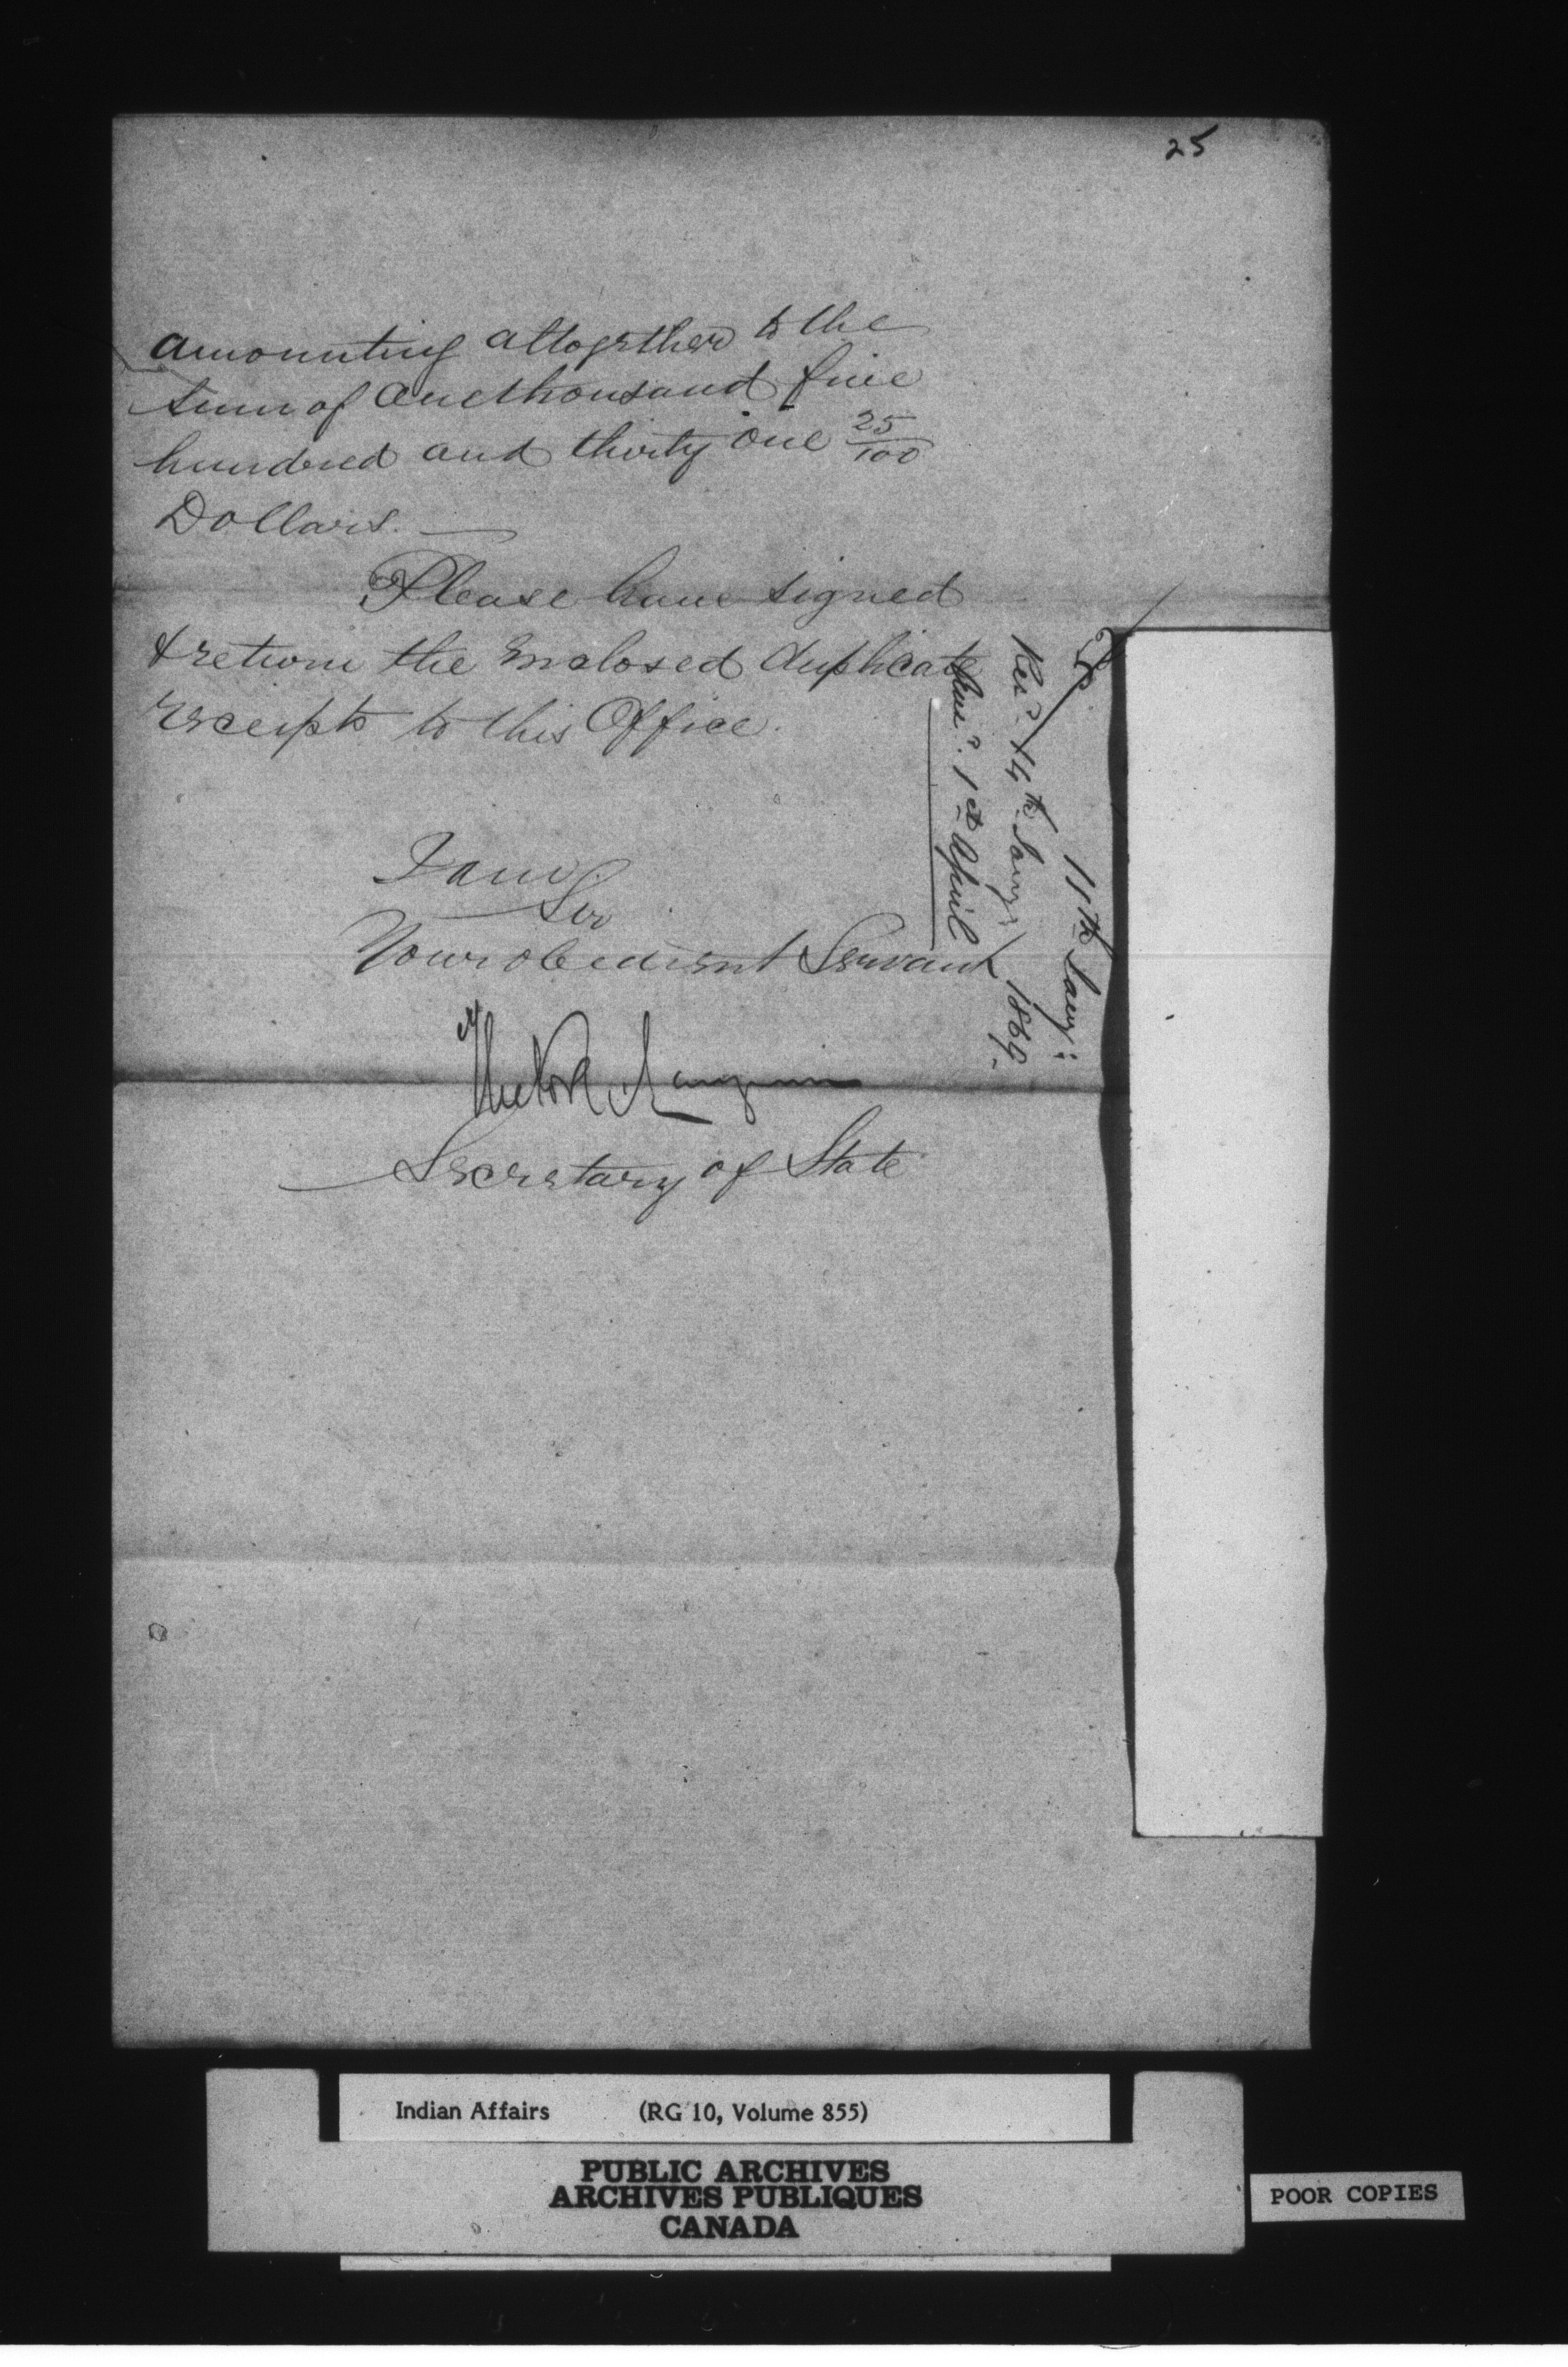 25
amounting altogether to the
sum of one thousand five
hundred and thirty one 25/100
Dollars.
Please have signed
& return the enclosed duplicate
receipts to this Office.
I am
Sir
Your obedient Servant
Secretary of State
11th Jany:
Recd. 14th Jany: 1869.
Ansd. 1st April
Indian Affairs (RG 10, Volume 855)
PUBLIC ARCHIVES
ARCHIVES PUBLIQUES
CANADA
POOR COPIES